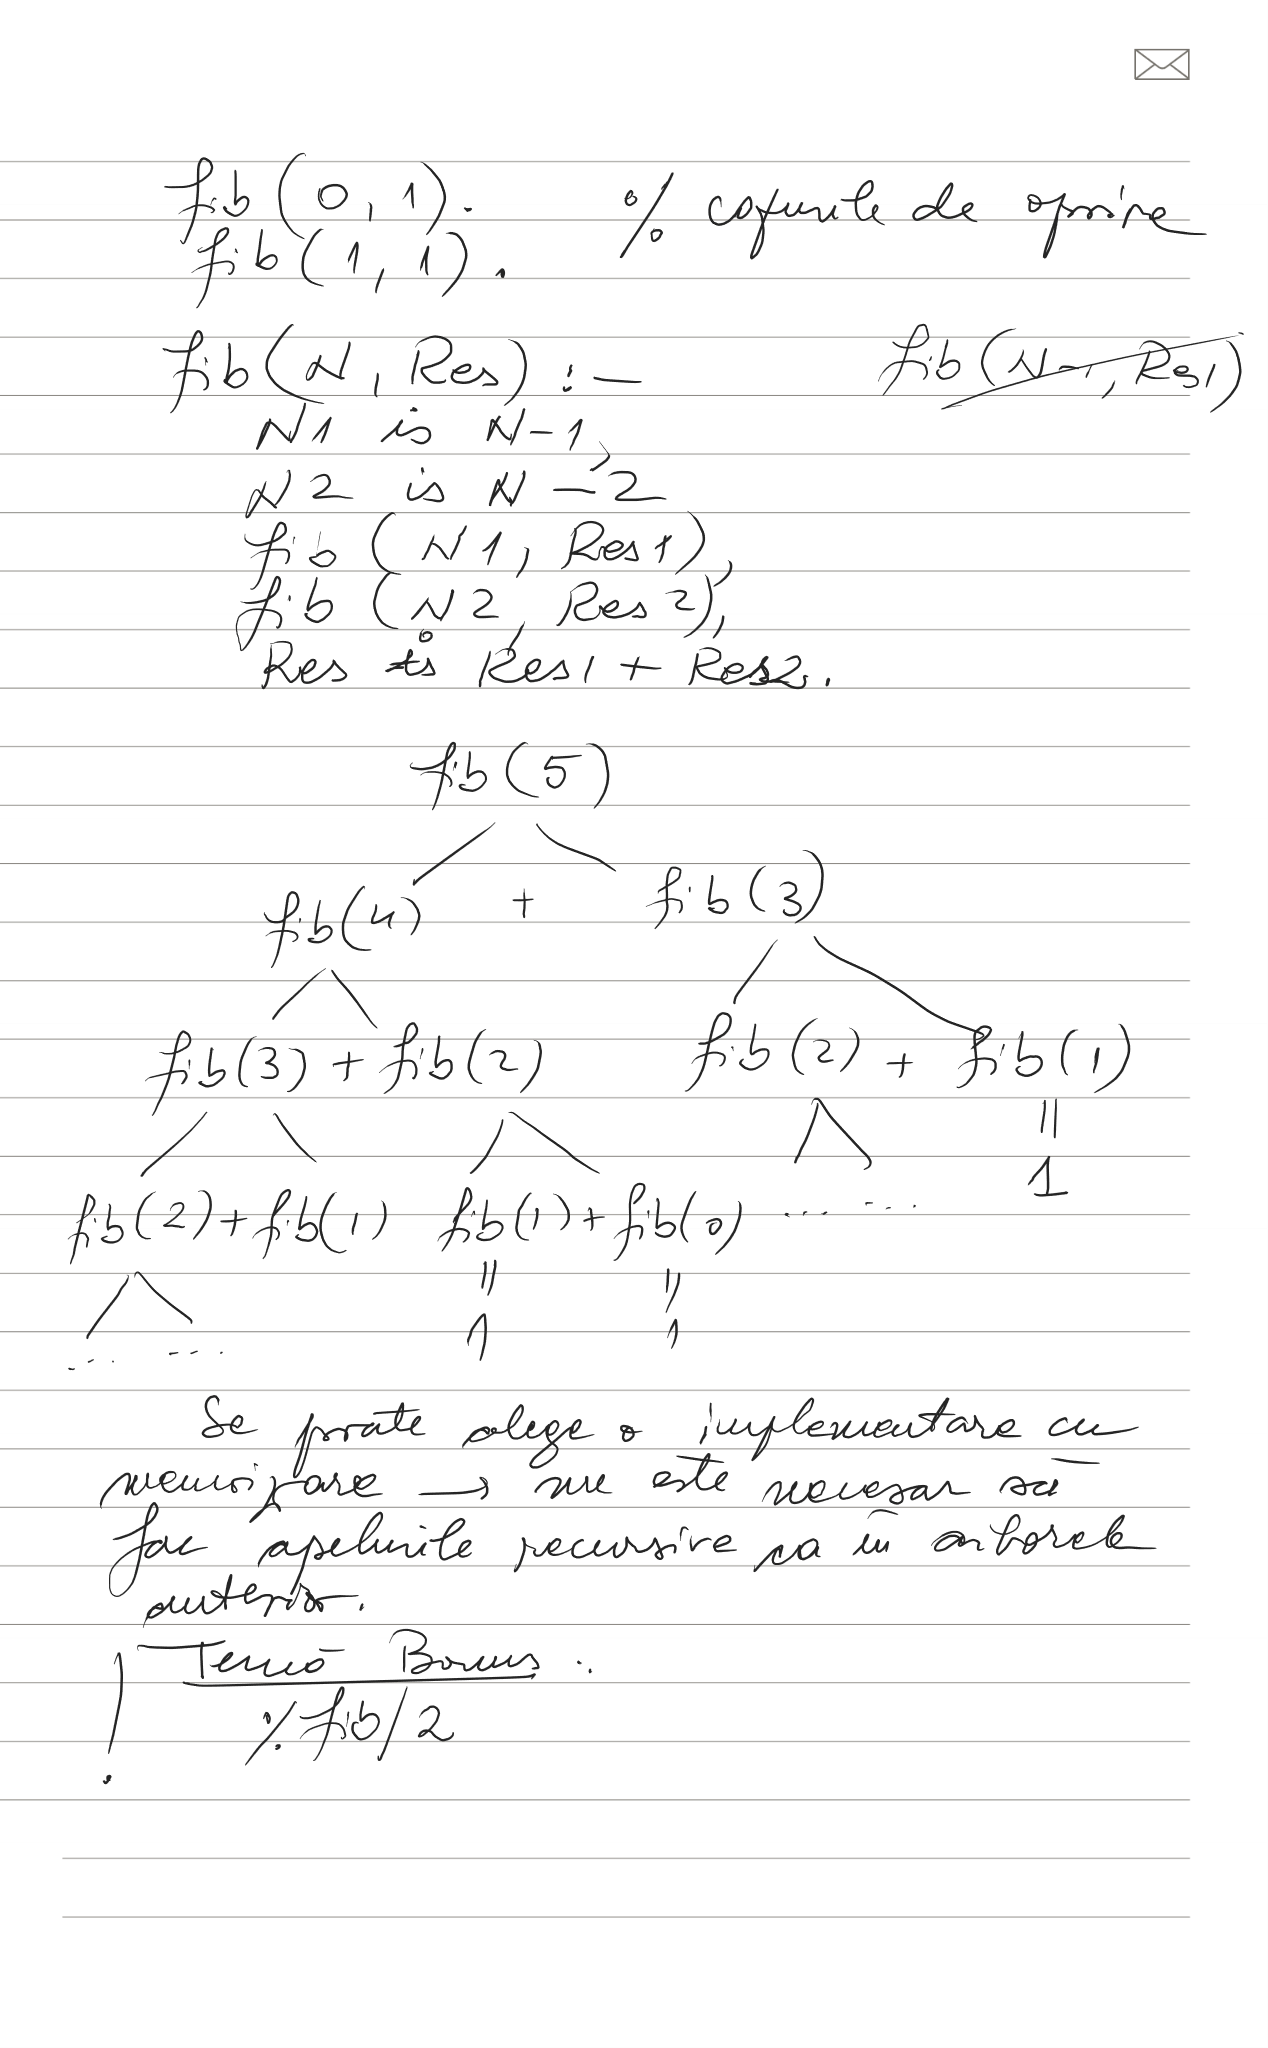 fib(0,1). % cazurile de oprire
fib(1,1).
fib(N, Res) :- fib(N-1, Res1)
N1 is N-1,
N2 is N-2
fib (N1, Res1),
fib (N2, Res2),
Res is Res1 + Res2.
fib(5)
fib(4) + fib(3)
fib(3) + fib(2) fib(2) + fib(1)
||
1
fib(2) + fib(1) fib(1) + fib(0) ... ...
|| ||
1 1
... ...
Se poate alege o implementare cu
memoizare → nu este necesar să
fac apelurile recursive ca în arborele
anterior.
! Temă Bonus :
% fib/2